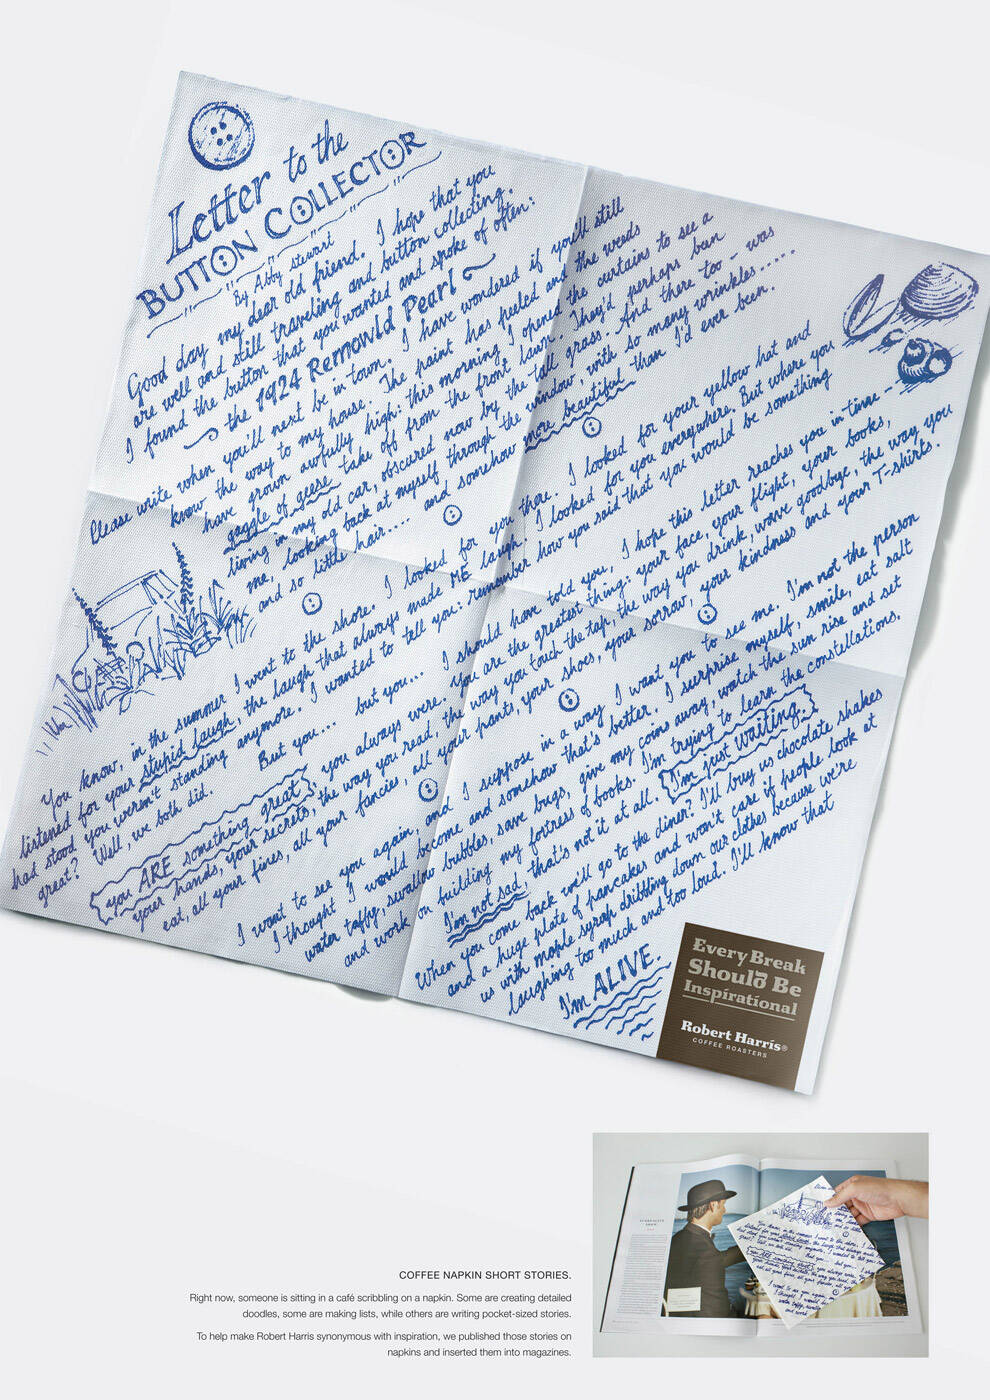 Letter to the
BUTTON COLLECTOR
By Abby Stewart
Good day my dear old friend. I hope that you
are well and still traveling and button collecting.
I found the button that you wanted and spoke of often:
the 1924 Remowld Pearl
Please write when you'll next be in town. I have wondered if you'll still
know the way to my house. The paint has peeled and the weeds
have grown awfully high: this morning I opened the curtains to see a
gaggle of geese take off from the front lawn. They'd perhaps been
living in my old car, obscured now by the tall grass. And there too - was
me, looking back at myself through the window, with so many wrinkles.....
and so little hair.... and somehow more beautiful than I'd ever been.
You know, in the summer I went to the shore. I looked for you there. I looked for your yellow hat and
listened for your stupid laugh, the laugh that always made ME laugh! I looked for you everywhere. But where you
had stood you weren't standing anymore. I wanted to tell you: remember how you said that you would be something
great? Well, we both did. But you... but you... I should have told you, I hope this letter reaches you in time--
you ARE something great, you always were. You are the greatest thing: your face, your flight, your books,
your hands, your secrets, the way you read, the way you touch the tap, the way you drink, wave goodbye, the way you
eat, all your fires, all your fancies, all your pants, your shoes, your sorrow, your kindness and your T-shirts.
I want to see you again, and I suppose in a way I want you to see me. I'm not the person
I thought I would become and somehow that's better. I surprise myself, smile, eat salt
water taffy, swallow bubbles, save bugs, give my coins away, watch the sun rise and set
and work on building my fortress of books. I'm trying to learn the constellations.
I'm not sad, that's not it at all. I'm just waiting.
When you come back we'll go to the diner? I'll buy us chocolate shakes
and a huge plate of pancakes and won't care if people look at
us with maple syrup dribbling down our clothes because we're
laughing too much and too loud. I'll know that
I'm ALIVE.
Every Break
Should Be
Inspirational
Robert Harris®
COFFEE ROASTERS
COFFEE NAPKIN SHORT STORIES.
Right now, someone is sitting in a café scribbling on a napkin. Some are creating detailed
doodles, some are making lists, while others are writing pocket-sized stories.
To help make Robert Harris synonymous with inspiration, we published those stories on
napkins and inserted them into magazines.